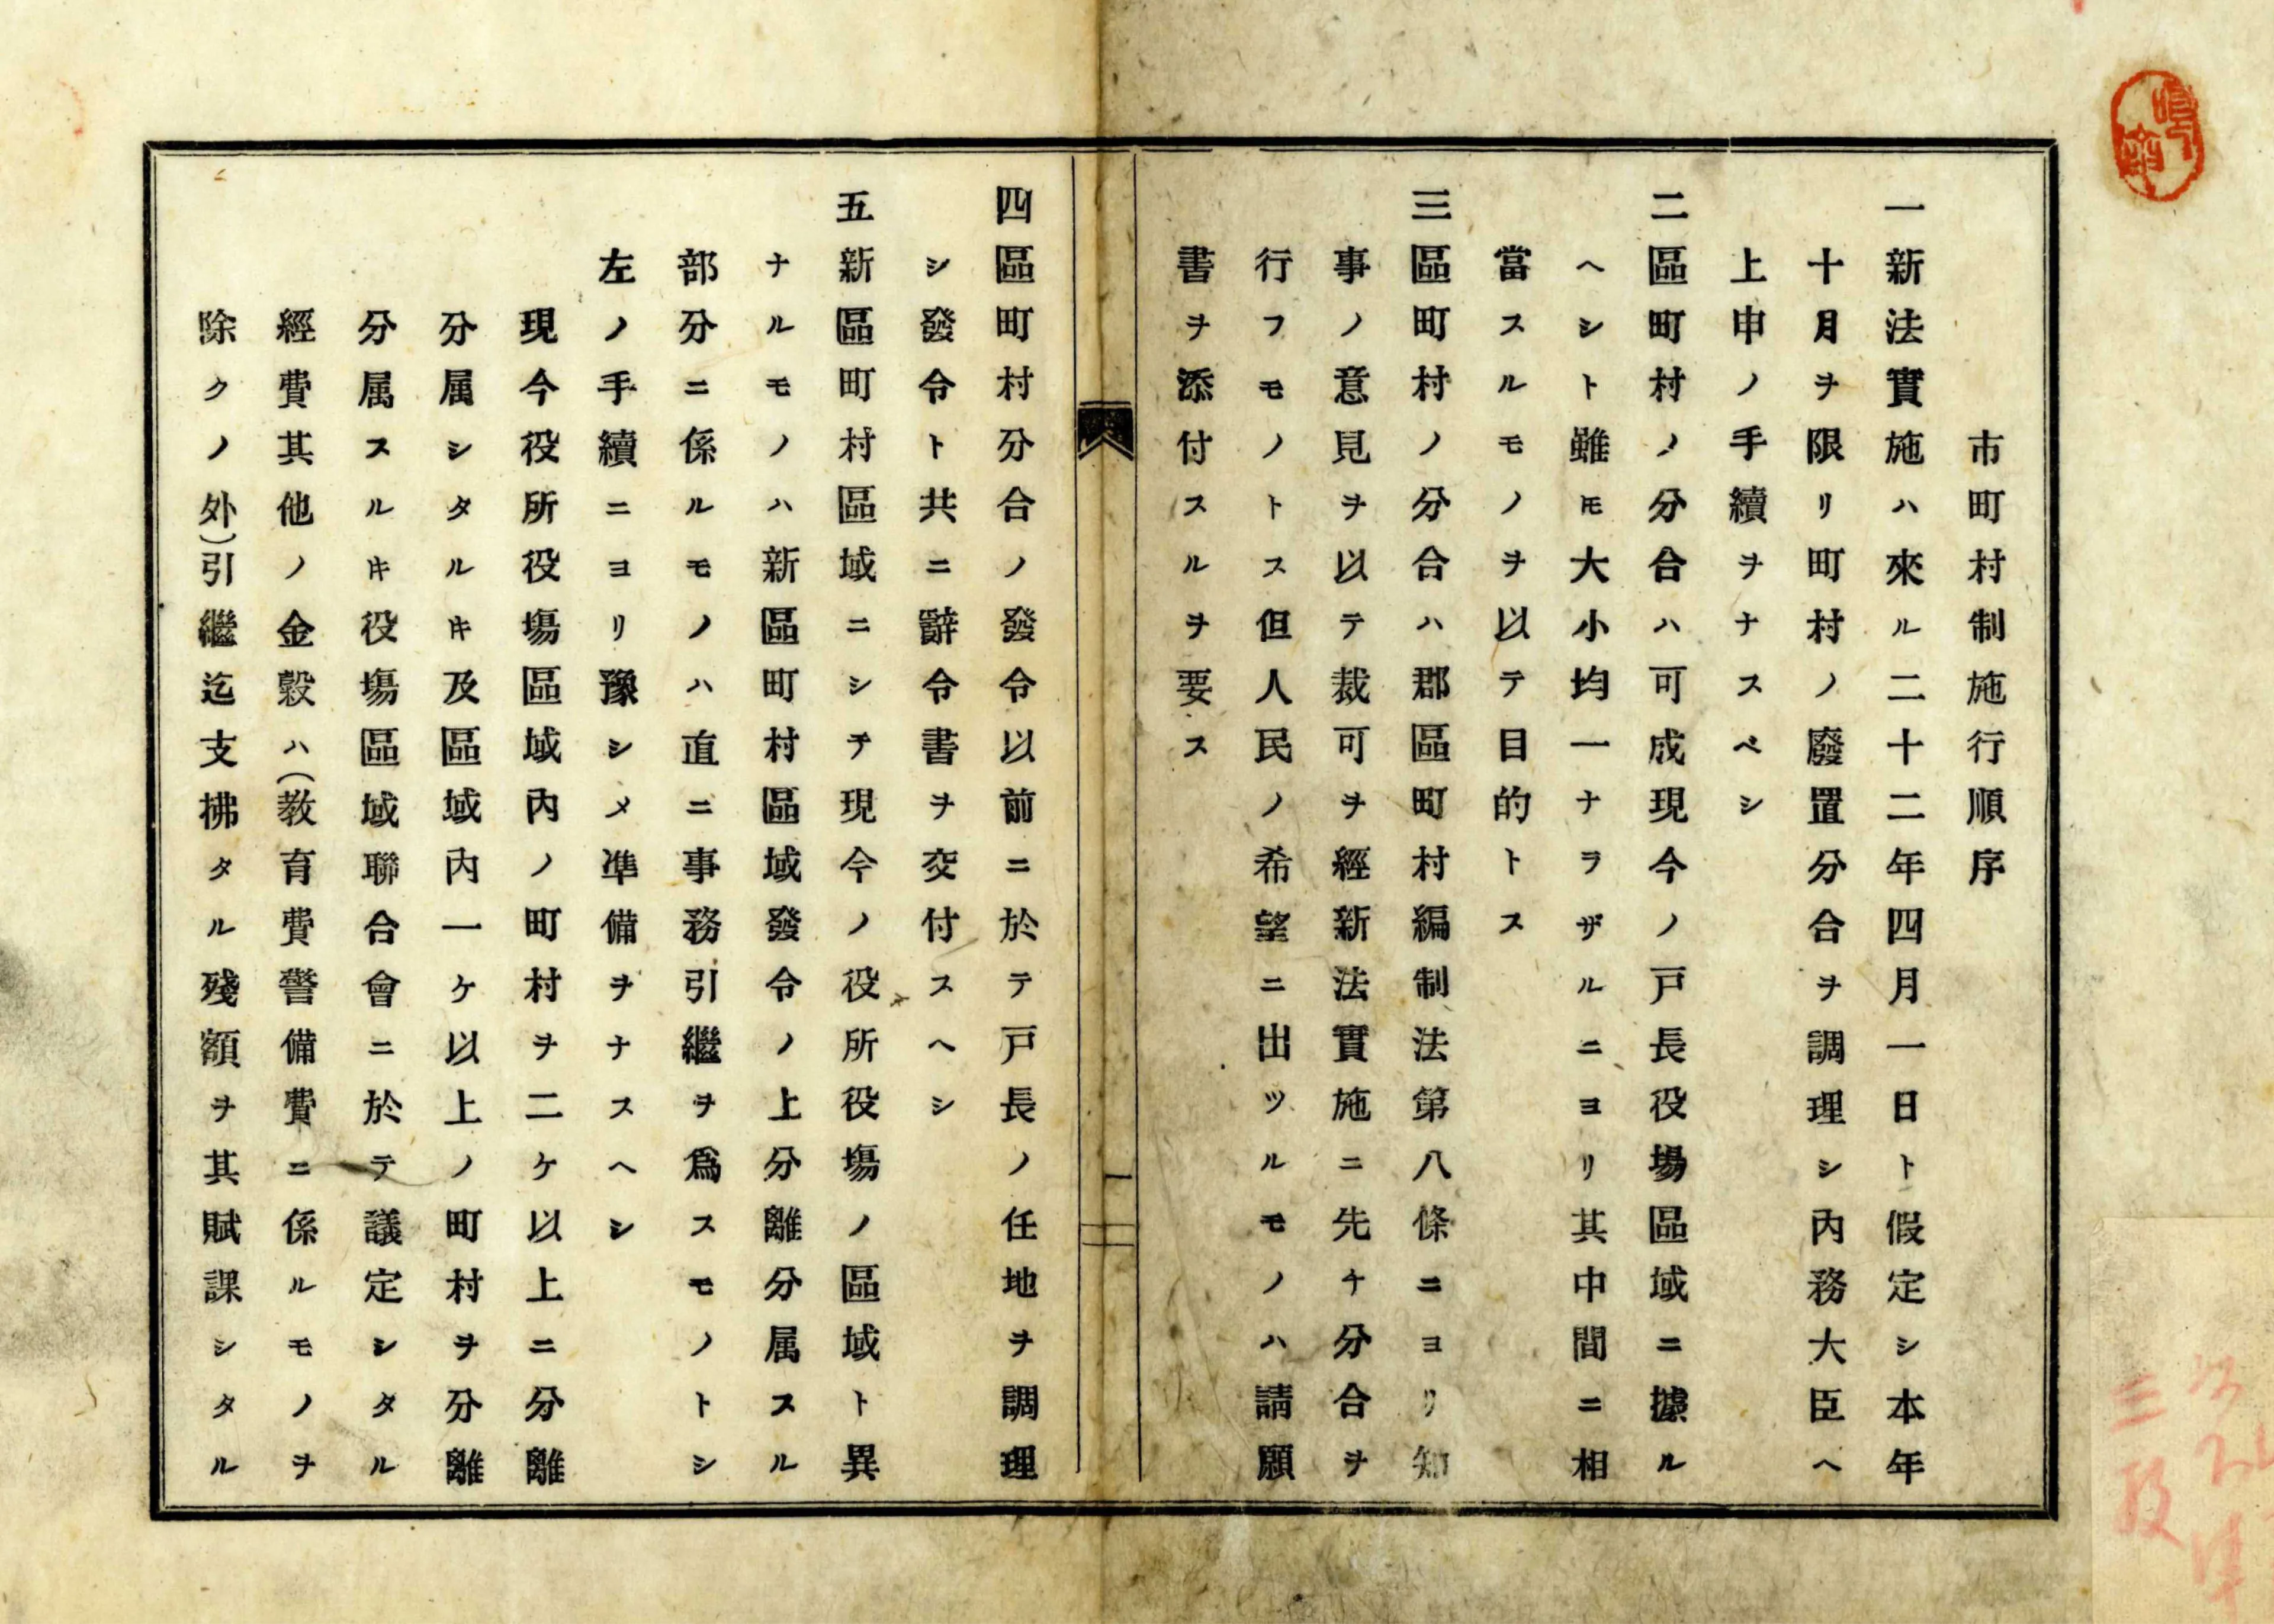 市町村制施行順序
一新法實施ハ來ル二十二年四月一日ト假定シ本年
十月ヲ限リ町村ノ廢置分合ヲ調理シ內務大臣ヘ
上申ノ手續ヲナスベシ
二區町村ノ分合ハ可成現今ノ戸長役塲區域ニ據ル
ヘシト雖モ大小均一ナラザルニヨリ其中間ニ相
當スルモノヲ以テ目的トス
三區町村ノ分合ハ郡區町村編制法第八條ニヨリ知
事ノ意見ヲ以テ裁可ヲ經新法實施ニ先チ分合ヲ
行フモノトス但人民ノ希望ニ出ツルモノハ請願
書ヲ添付スルヲ要ス
一
四區町村分合ノ發令以前ニ於テ戸長ノ任地ヲ調理
シ發令ト共ニ辭令書ヲ交付スヘシ
五新區町村區域ニシテ現今ノ役所役塲ノ區域ト異
ナルモノハ新區町村區域發令ノ上分離分属スル
部分ニ係ルモノハ直ニ事務引繼ヲ爲スモノトシ
左ノ手續ニヨリ豫シメ準備ヲナスヘシ
現今役所役塲區域內ノ町村ヲ二ケ以上ニ分離
分属シタルキ及區域內一ケ以上ノ町村ヲ分離
分属スルキ役塲區域聯合會ニ於テ議定シタル
經費其他ノ金穀ハ（敎育費警備費ニ係ルモノヲ
除クノ外）引繼迄支拂タル殘額ヲ其賦課シタル
三段